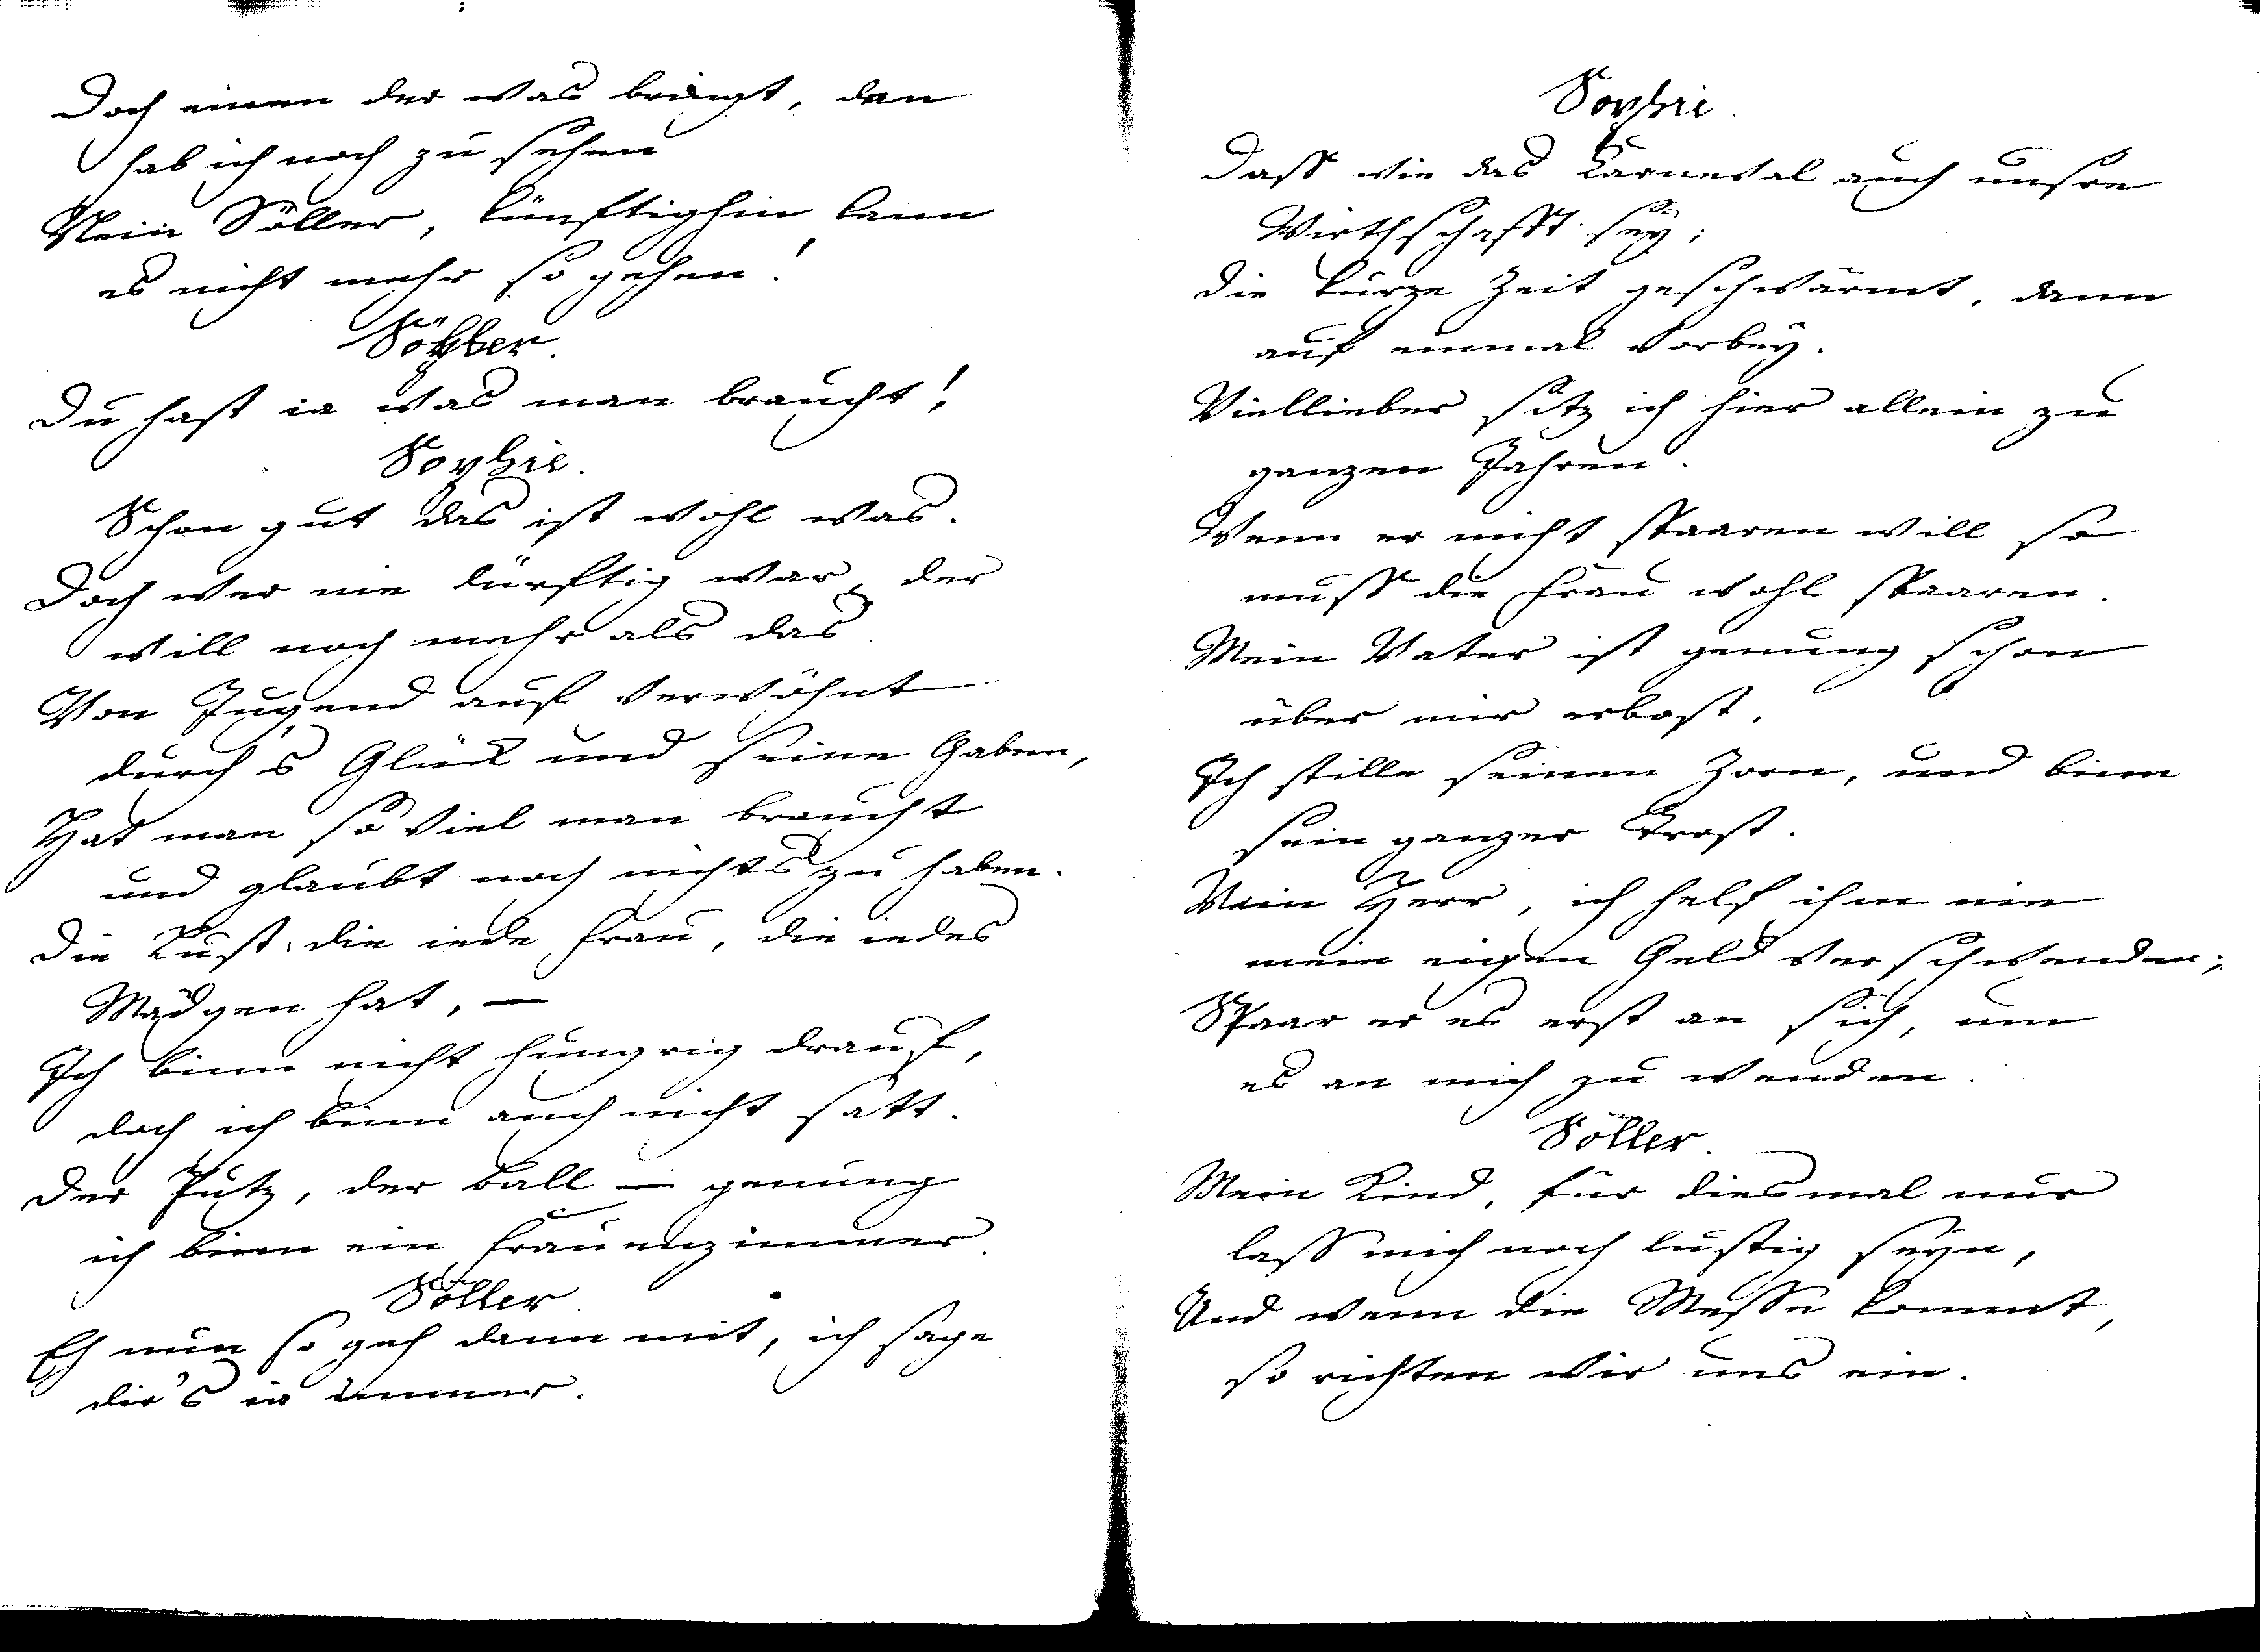 Doch einen der was bringt, den
hab ich noch zu sehen
Nein Söller, künftighin kann
es nicht mehr so gehen!
Söller.
Du hast ia was man braucht!
Sophie.
Schon gut das ist wohl was.
Doch wer nie dürftig war, der
will noch mehr als das.
Von Jugend auf verwöhnt
durch's Glück und seine Gaben,
Hat man so viel man braucht
und glaubt noch nichts zu haben.
Die Lust, die iede Frau, die iedes
Mädgen hat, —
Ich binn nicht hungrig drauf,
doch ich binn auch nicht satt.
Der Putz, der Ball — genung
ich binn ein Frauenzimmer.
Söller
Eh nun so geh dann mit, ich sage
dir's ia immer.
Sophie.
Dass wie das Karneval auch unsre
Wirthschafft sey;
Die kurze Zeit geschwärmt, dann
auf einmal vorbey.
Viellieber sitz ich hier allein zu
ganzen Jahren.
Wenn er nicht spaaren will so
muss die Frau wohl spaaren.
Mein Vater ist genung schon
über mir erbost,
Ich stille seinen Zorn, und binn
sein ganzer Trost.
Nein Herr, ich helf ihm nie
mein eigen Geld verschwenden;
Spaar er es erst an sich, um
es an mich zu wenden.
Söller.
Mein Kind, für diesmal nur
lass mich noch lustig seyn,
Und wenn die Messe kommt,
so richten wir uns ein.